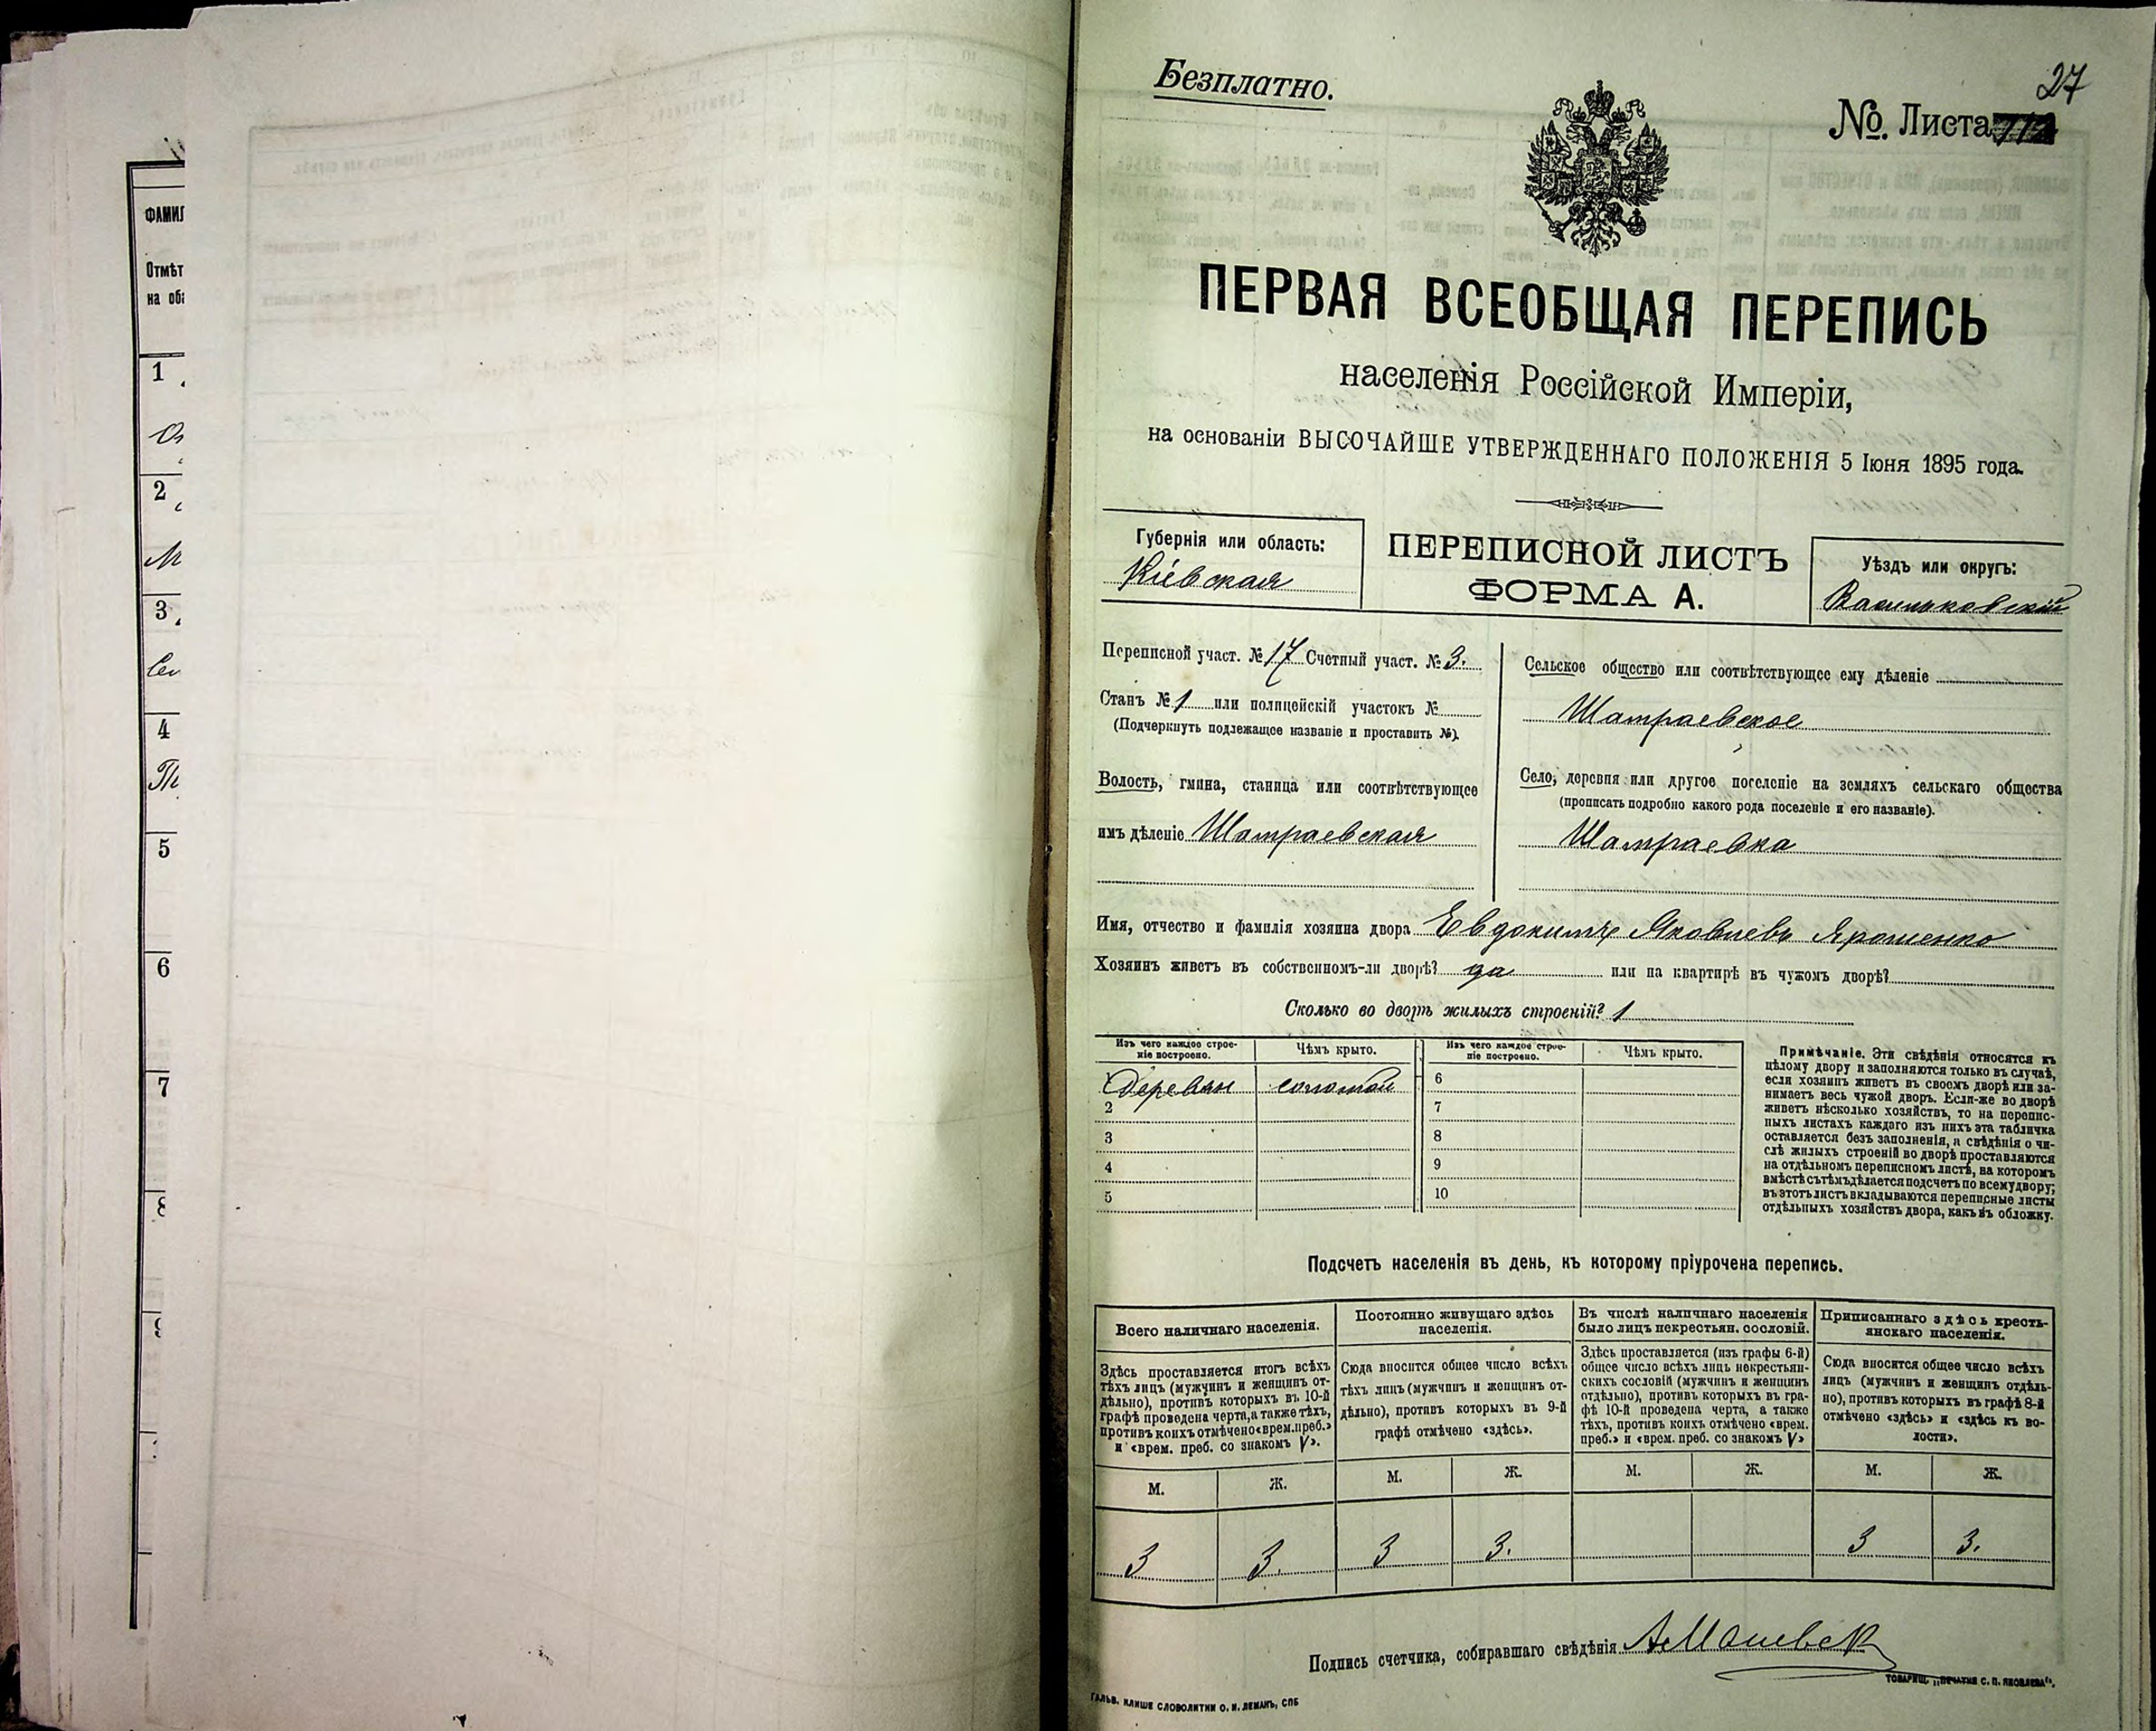 ФАМИЛ
Отмѣт
на оба
1
2
3
4
5
6
7
8
9
27
Безплатно.
№. Листа
ПЕРВАЯ ВСЕОБЩАЯ ПЕРЕПИСЬ
населенія Россійской Имперіи,
на основаніи ВЫСОЧАЙШЕ УТВЕРЖДЕННАГО ПОЛОЖЕНІЯ 5 Іюня 1895 года.
Губернія или область:
Кіевская
ПЕРЕПИСНОЙ ЛИСТЪ
ФОРМА А.
Уѣздъ или округъ:
Васильковскій
Переписной участ. № 17 Счетный участ. № 3.
Станъ № 1 или полицейскій участокъ №
(Подчеркнуть подлежащее названіе и проставить №).
Волость, гмина, станица или соотвѣтствующее
имъ дѣленіе Шамраевская
Сельское общество или соотвѣтствующее ему дѣленіе
Шамраевское
Село, деревня или другое поселеніе на земляхъ сельскаго общества
(прописать подробно какого рода поселеніе и его названіе).
Шамраевка
Имя, отчество и фамилія хозяина двора Евдокимъ Яковлевъ Ярошенко
Хозяинъ живетъ въ собственномъ-ли дворѣ? да или на квартирѣ въ чужомъ дворѣ?
Сколько во дворѣ жилыхъ строеній? 1
Изъ чего каждое строе-
ніе построено.
Чѣмъ крыто.
Изъ чего каждое строе-
ніе построено.
Чѣмъ крыто.
Деревян соломой 6
2 7
3 8
4 9
5 10
Примѣчаніе. Эти свѣдѣнія относятся къ
цѣлому двору и заполняются только въ случаѣ,
если хозяинъ живетъ въ своемъ дворѣ или за-
нимаетъ весь чужой дворъ. Если-же во дворѣ
живетъ нѣсколько хозяйствъ, то на перепис-
ныхъ листахъ каждаго изъ нихъ эта табличка
оставляется безъ заполненія, а свѣдѣнія о чи-
слѣ жилыхъ строеній во дворѣ проставляются
на отдѣльномъ переписномъ листѣ, на которомъ
вмѣстѣ съ тѣмъ дѣлается подсчетъ по всему двору;
въ этотъ листъ вкладываются переписные листы
отдѣльныхъ хозяйствъ двора, какъ въ обложку.
Подсчетъ населенія въ день, къ которому пріурочена перепись.
Всего наличнаго населенія.
Здѣсь проставляется итогъ всѣхъ
тѣхъ лицъ (мужчинъ и женщинъ от-
дѣльно), противъ которыхъ въ 10-й
графѣ проведена черта, а также тѣхъ,
противъ коихъ отмѣчено «врем. преб.»
и «врем. преб. со знакомъ V».
М. Ж.
3 3.
Постоянно живущаго здѣсь
населенія.
Сюда вносится общее число всѣхъ
тѣхъ лицъ (мужчинъ и женщинъ от-
дѣльно), противъ которыхъ въ 9-й
графѣ отмѣчено «здѣсь».
М. Ж.
3 3.
Въ числѣ наличнаго населенія
было лицъ некрестьян. сословій.
Здѣсь проставляется (изъ графы 6-й)
общее число всѣхъ лицъ некрестьян-
скихъ сословій (мужчинъ и женщинъ
отдѣльно), противъ которыхъ въ гра-
фѣ 10-й проведена черта, а также
тѣхъ, противъ коихъ отмѣчено «врем.
преб.» и «врем. преб. со знакомъ V»
М. Ж.
Приписаннаго здѣсь кресть-
янскаго населенія.
Сюда вносится общее число всѣхъ
лицъ (мужчинъ и женщинъ отдѣль-
но), противъ которыхъ въ графѣ 8-й
отмѣчено «здѣсь» и «здѣсь къ во-
лости».
М. Ж.
3 3.
Подпись счетчика, собиравшаго свѣдѣнія
ГАЛЬВ. КЛИШЕ СЛОВОЛИТНИ О. И. ЛЕМАНЪ, СПБ
ТОВАРИЩ. „ПЕЧАТНЯ С. П. ЯКОВЛЕВА“.